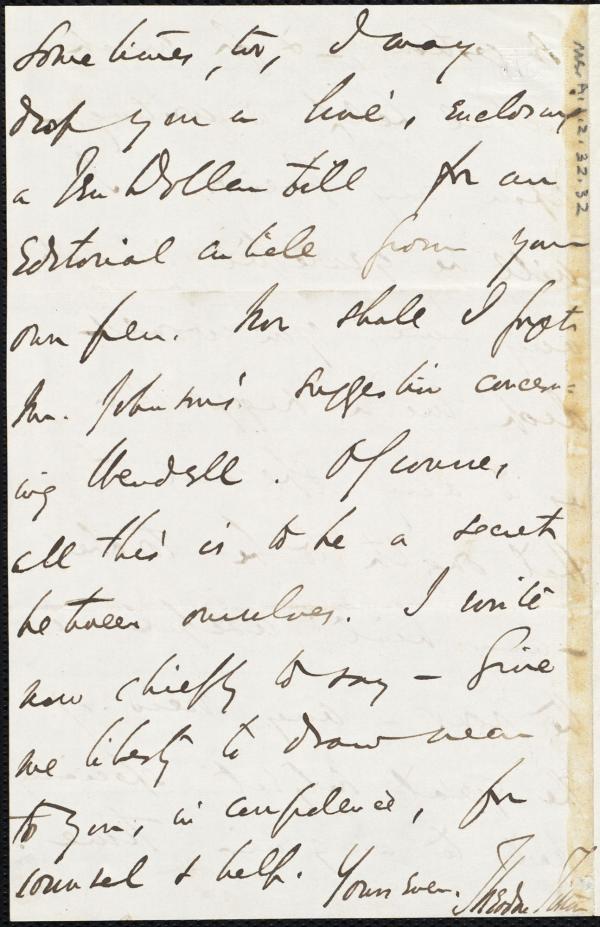 Sometimes, too, I may
drop you a line, enclosing
a Ten Dollar bill for an
Editorial article from your
own pen. Nor shall I forget
Mr. Johnson's suggestion concern-
ing Wendell. Of course,
all this is to be a secret
between ourselves. I write
now chiefly to say – Give
me liberty to draw near
to you, in confidence, for
counsel & help. Yours ever,
Theodore Tilton